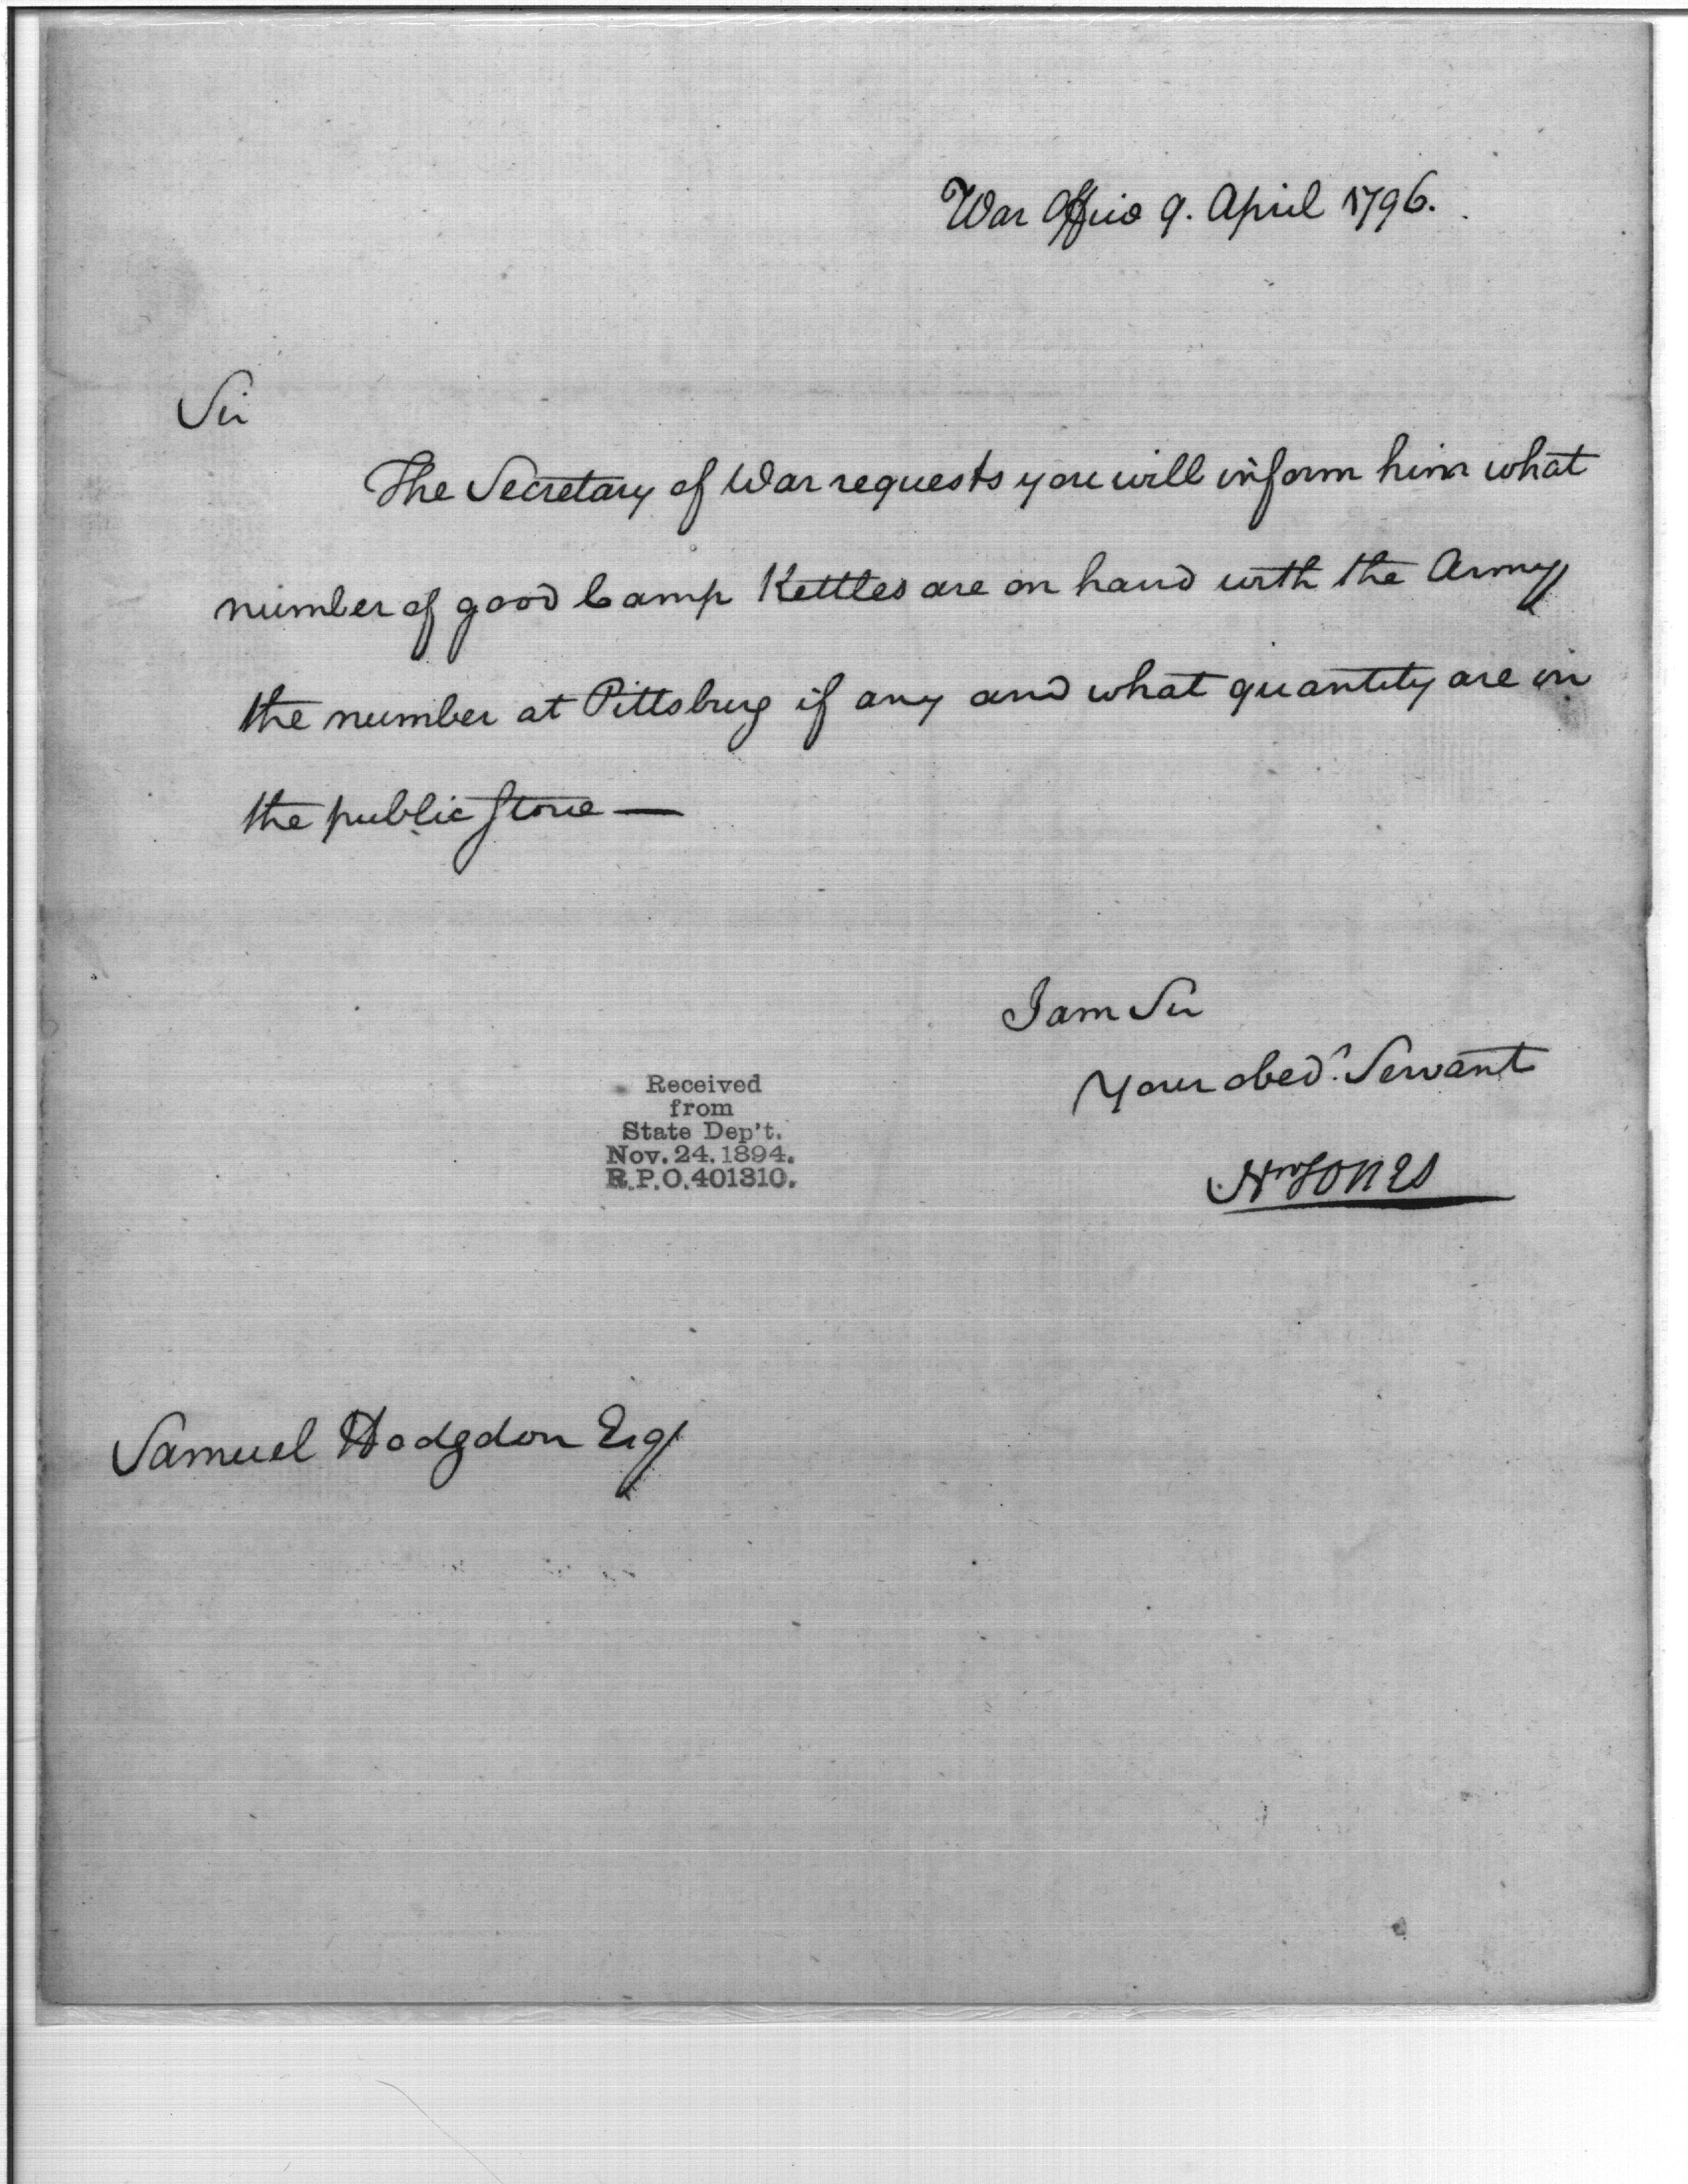 War Office 9. April 1796.
Sir
The Secretary of War requests you will inform him what
number of good Camp Kettles are on hand with the Army
the number at Pittsburg if any and what quantity are in
the public Store —
I am Sir
Your obedt. Servant
Received
from
State Dep't.
Nov. 24. 1894.
R.P.O. 401310.
Jones
Samuel Hodgdon Esqr